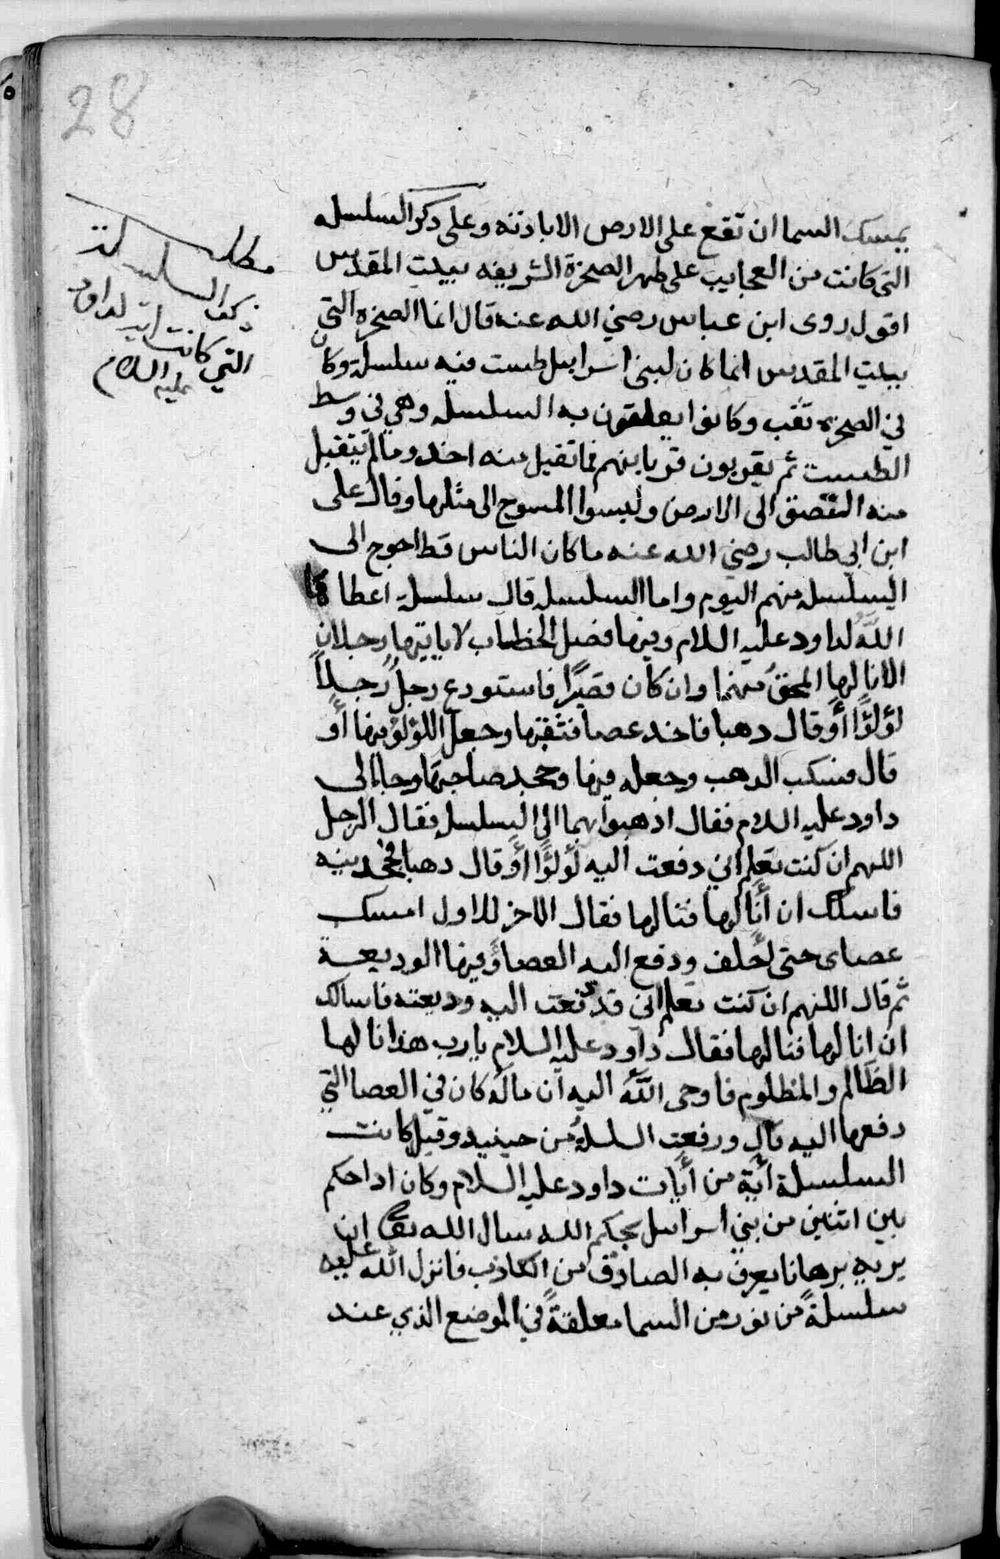 28
يمسك السما ان تقع على الارض الا باذنه وعلى ذكر السلسله
التي كانت من العجايب على ظهر الصخرة الشريفه ببيت المقدس
اقول روى ابن عباس رضي الله عنه قال انما الصخره التي
ببيت المقدس انما كان لبني اسرايل طست فيه سلسلة وكان
في الصخره ثقب وكانوا يعلقون به السلسله وهي في وسط
الطست ثم يقربون قربابنهم فما تقبل منه اخذ وما لم يتقبل
منه التصق الى الارض ولبسوا المسوح الى مثلها وقال على
ابن ابي طالب رضي الله عنه ما كان الناس قط احوج الى
السلسله منهم اليوم واما السلسله قال سلسلة اعطاها
الله لداود عليه السلام وفيها فصل الخطاب لا ياتيها رجلان
الا نالها المحق منهما وان كان قصيرًا فاستودع رجلٌ رجلاً
لؤلوًا أو قال دهبا فاخد عصا فثقبها وجعل اللؤلؤ فيها أو
قال فسكب الدهب وجعله فيها وجحد صاحبها وجا الى
داود عليه السلام فقال اذهبوا بهما الى السلسله فقال الرجل
اللهم ان كنت تعلم اني دفعت اليه لؤلوًا أو قال دهبا فجحدنيه
فاسلك ان أنالها فنالها فقال الاخر للاول امسك
عصاى حتى احلف ودفع اليه العصا وفيها الوديعة
ثم قال اللهم ان كنت تعلم اني قد دفعت اليه وديعته فاسالك
ان انالها فنالها فقال داود عليه السلام يارب هذا نالها
الظالم والمظلوم فاوحى الله اليه ان ماله كان في العصا التي
دفعها اليه قال ورفعت السلسلة من حينيد وقيل كانت
السلسلة أية من أيات داود عليه السلام وكان اداحكم
بين اثنين من بني اسرايل بحكم الله سال الله تعا ان
يريه برهانا يعرف به الصادق من الكاذب فانزل الله عليه
سلسلةً من نور من السما معلقةً في الموضع الذي عند
مطلب
السلسلة
التي كانت لداود
عليه السلام